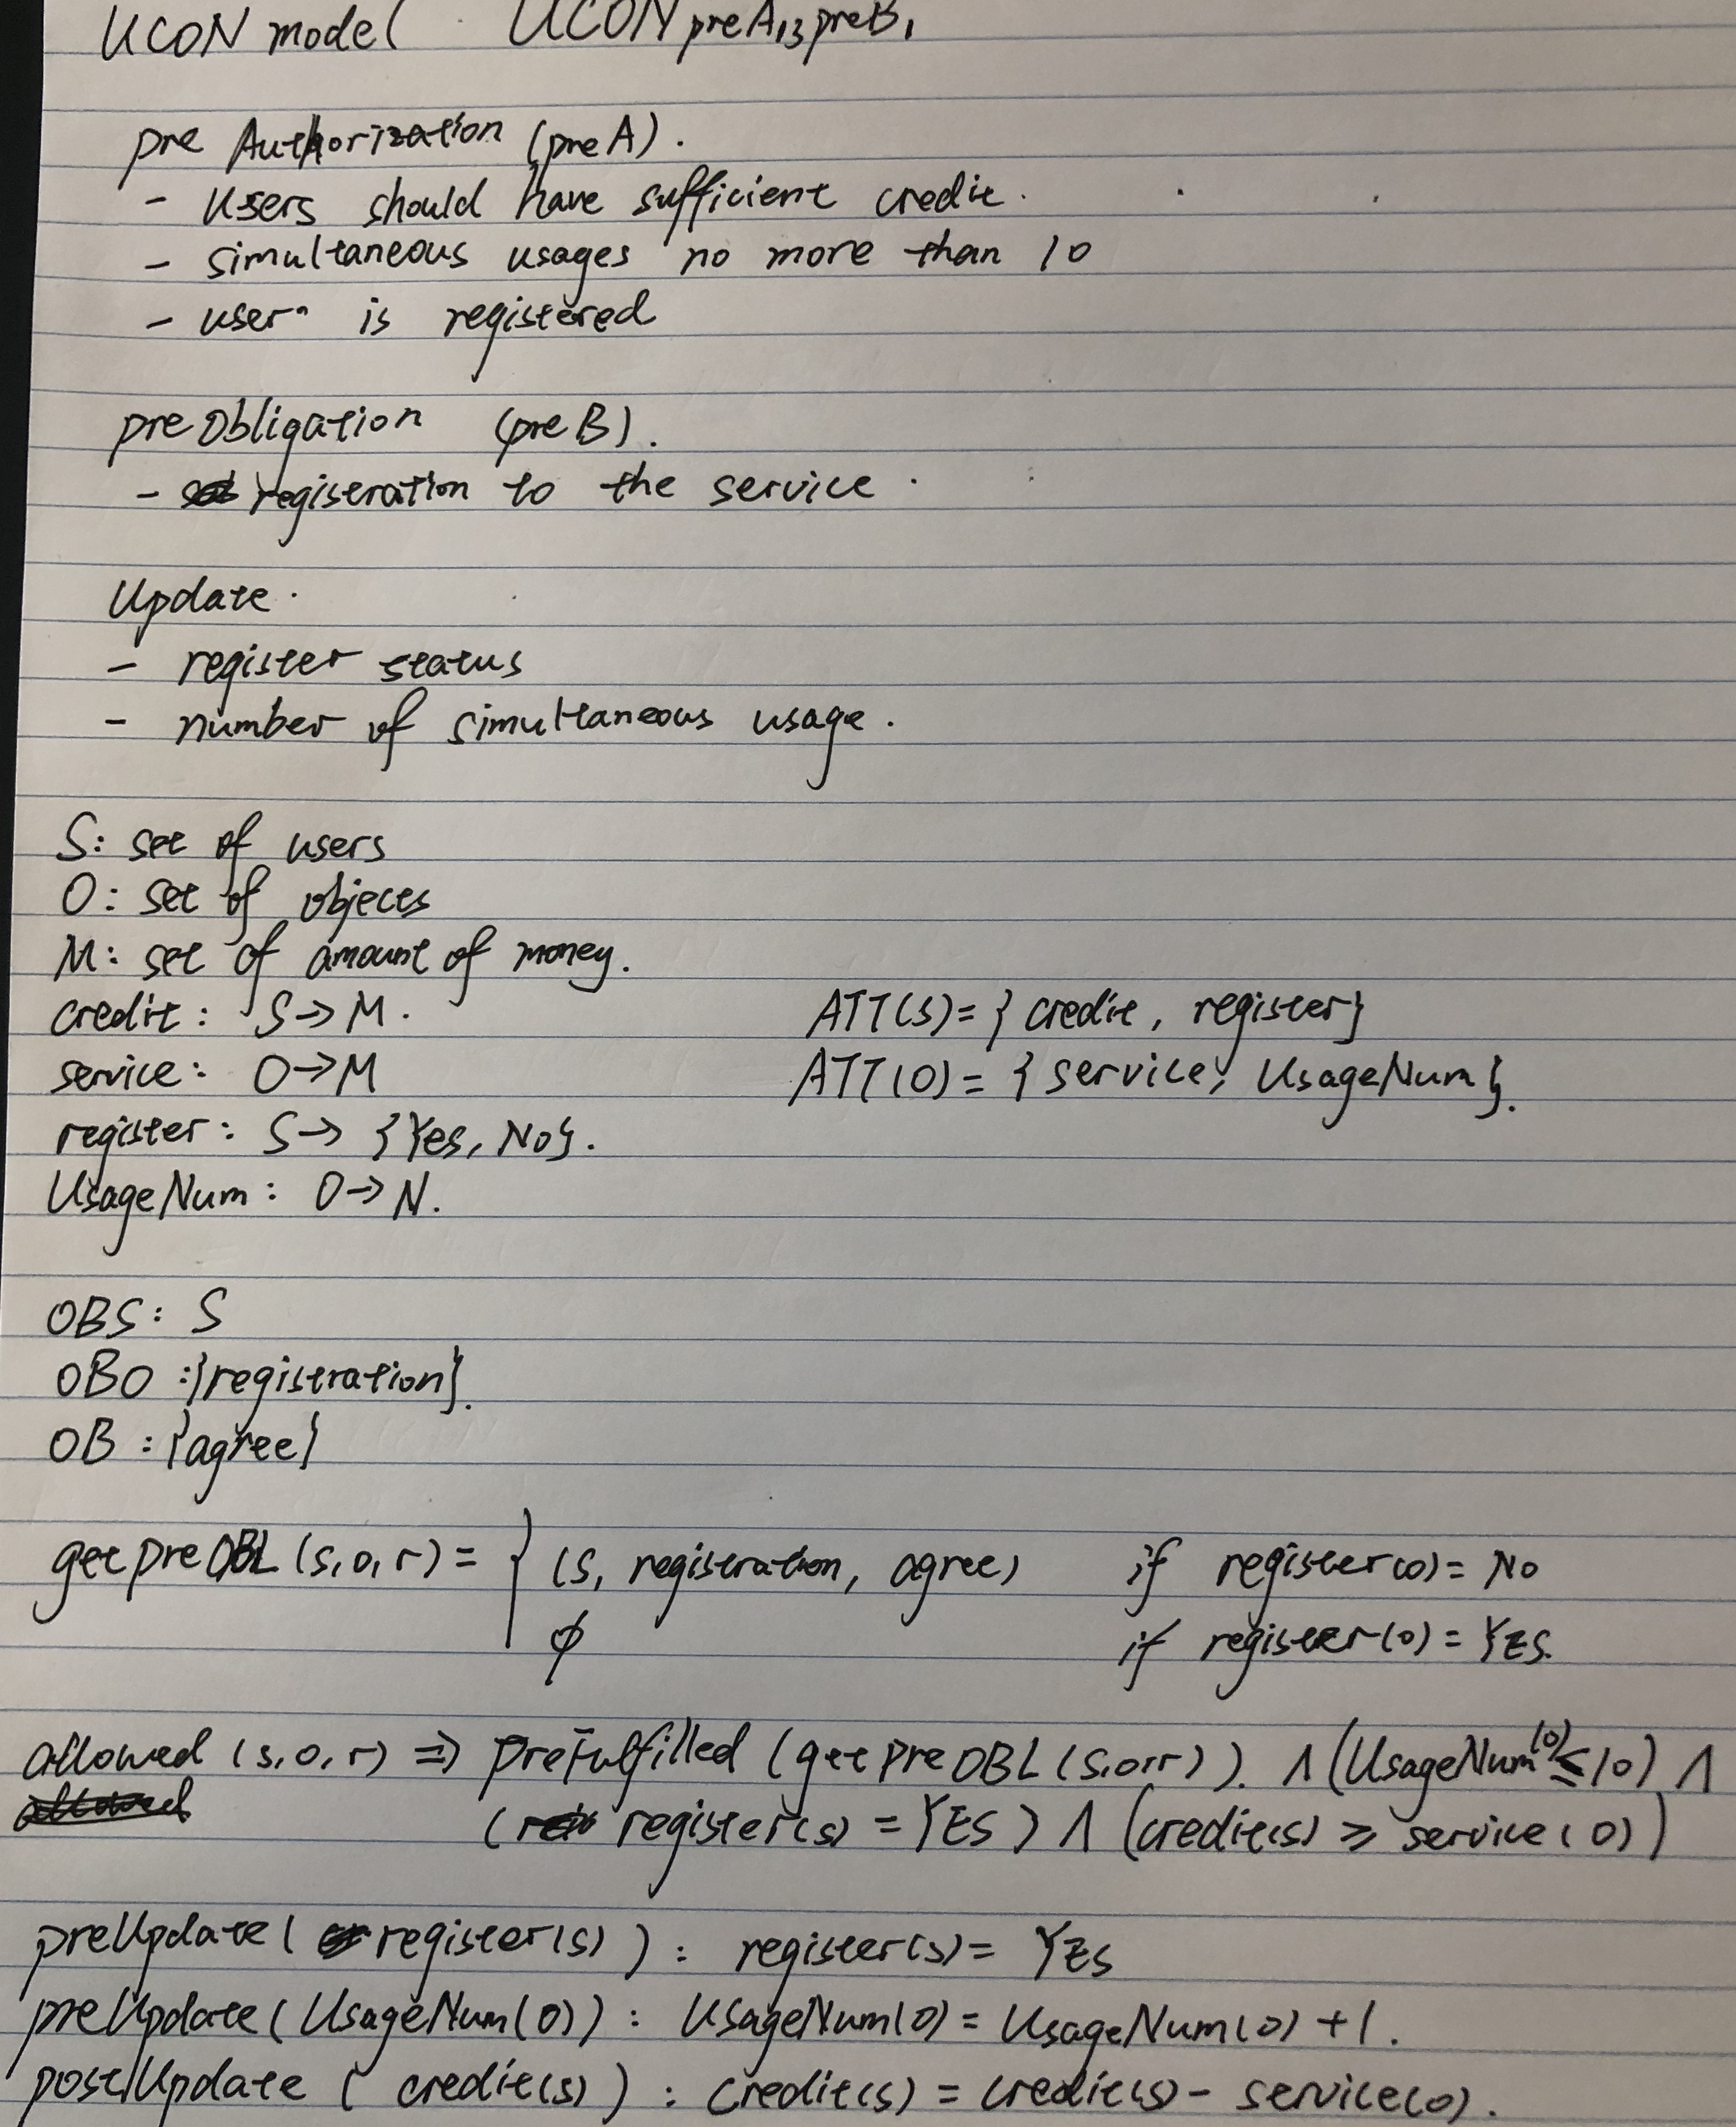 UCON model UCON preA13 preB1
pre Authorization (preA).
- Users should have sufficient credit.
- simultaneous usages no more than 10
- user is registered
pre Obligation (preB).
- registration to the service.
Update.
- register status
- number of simultaneous usage.
S: set of users
O: set of objects
M: set of amount of money.
credit: S→M. ATT(S)={credit, register}
service: O→M ATT(O)={service, UsageNum}.
register: S→ {Yes, No}.
UsageNum: O→N.
OBS: S
OBO :{registration}.
OB :{agree}
getpreOBL(s,o,r)= { (s, registration, agree) if register(o)= No
ϕ if register(o)= YES.
allowed (s,o,r) ⇒ preFulfilled (getpreOBL(s,o,r)). ∧ (UsageNum(o)≤10) ∧
(register(s) = YES) ∧ (credit(s) ≥ service(o))
preUpdate( register(s) ): register(s)= YES
preUpdate( UsageNum(o)): UsageNum(o)= UsageNum(o)+1.
postUpdate ( credit(s) ): credit(s) = credit(s)- service(o).